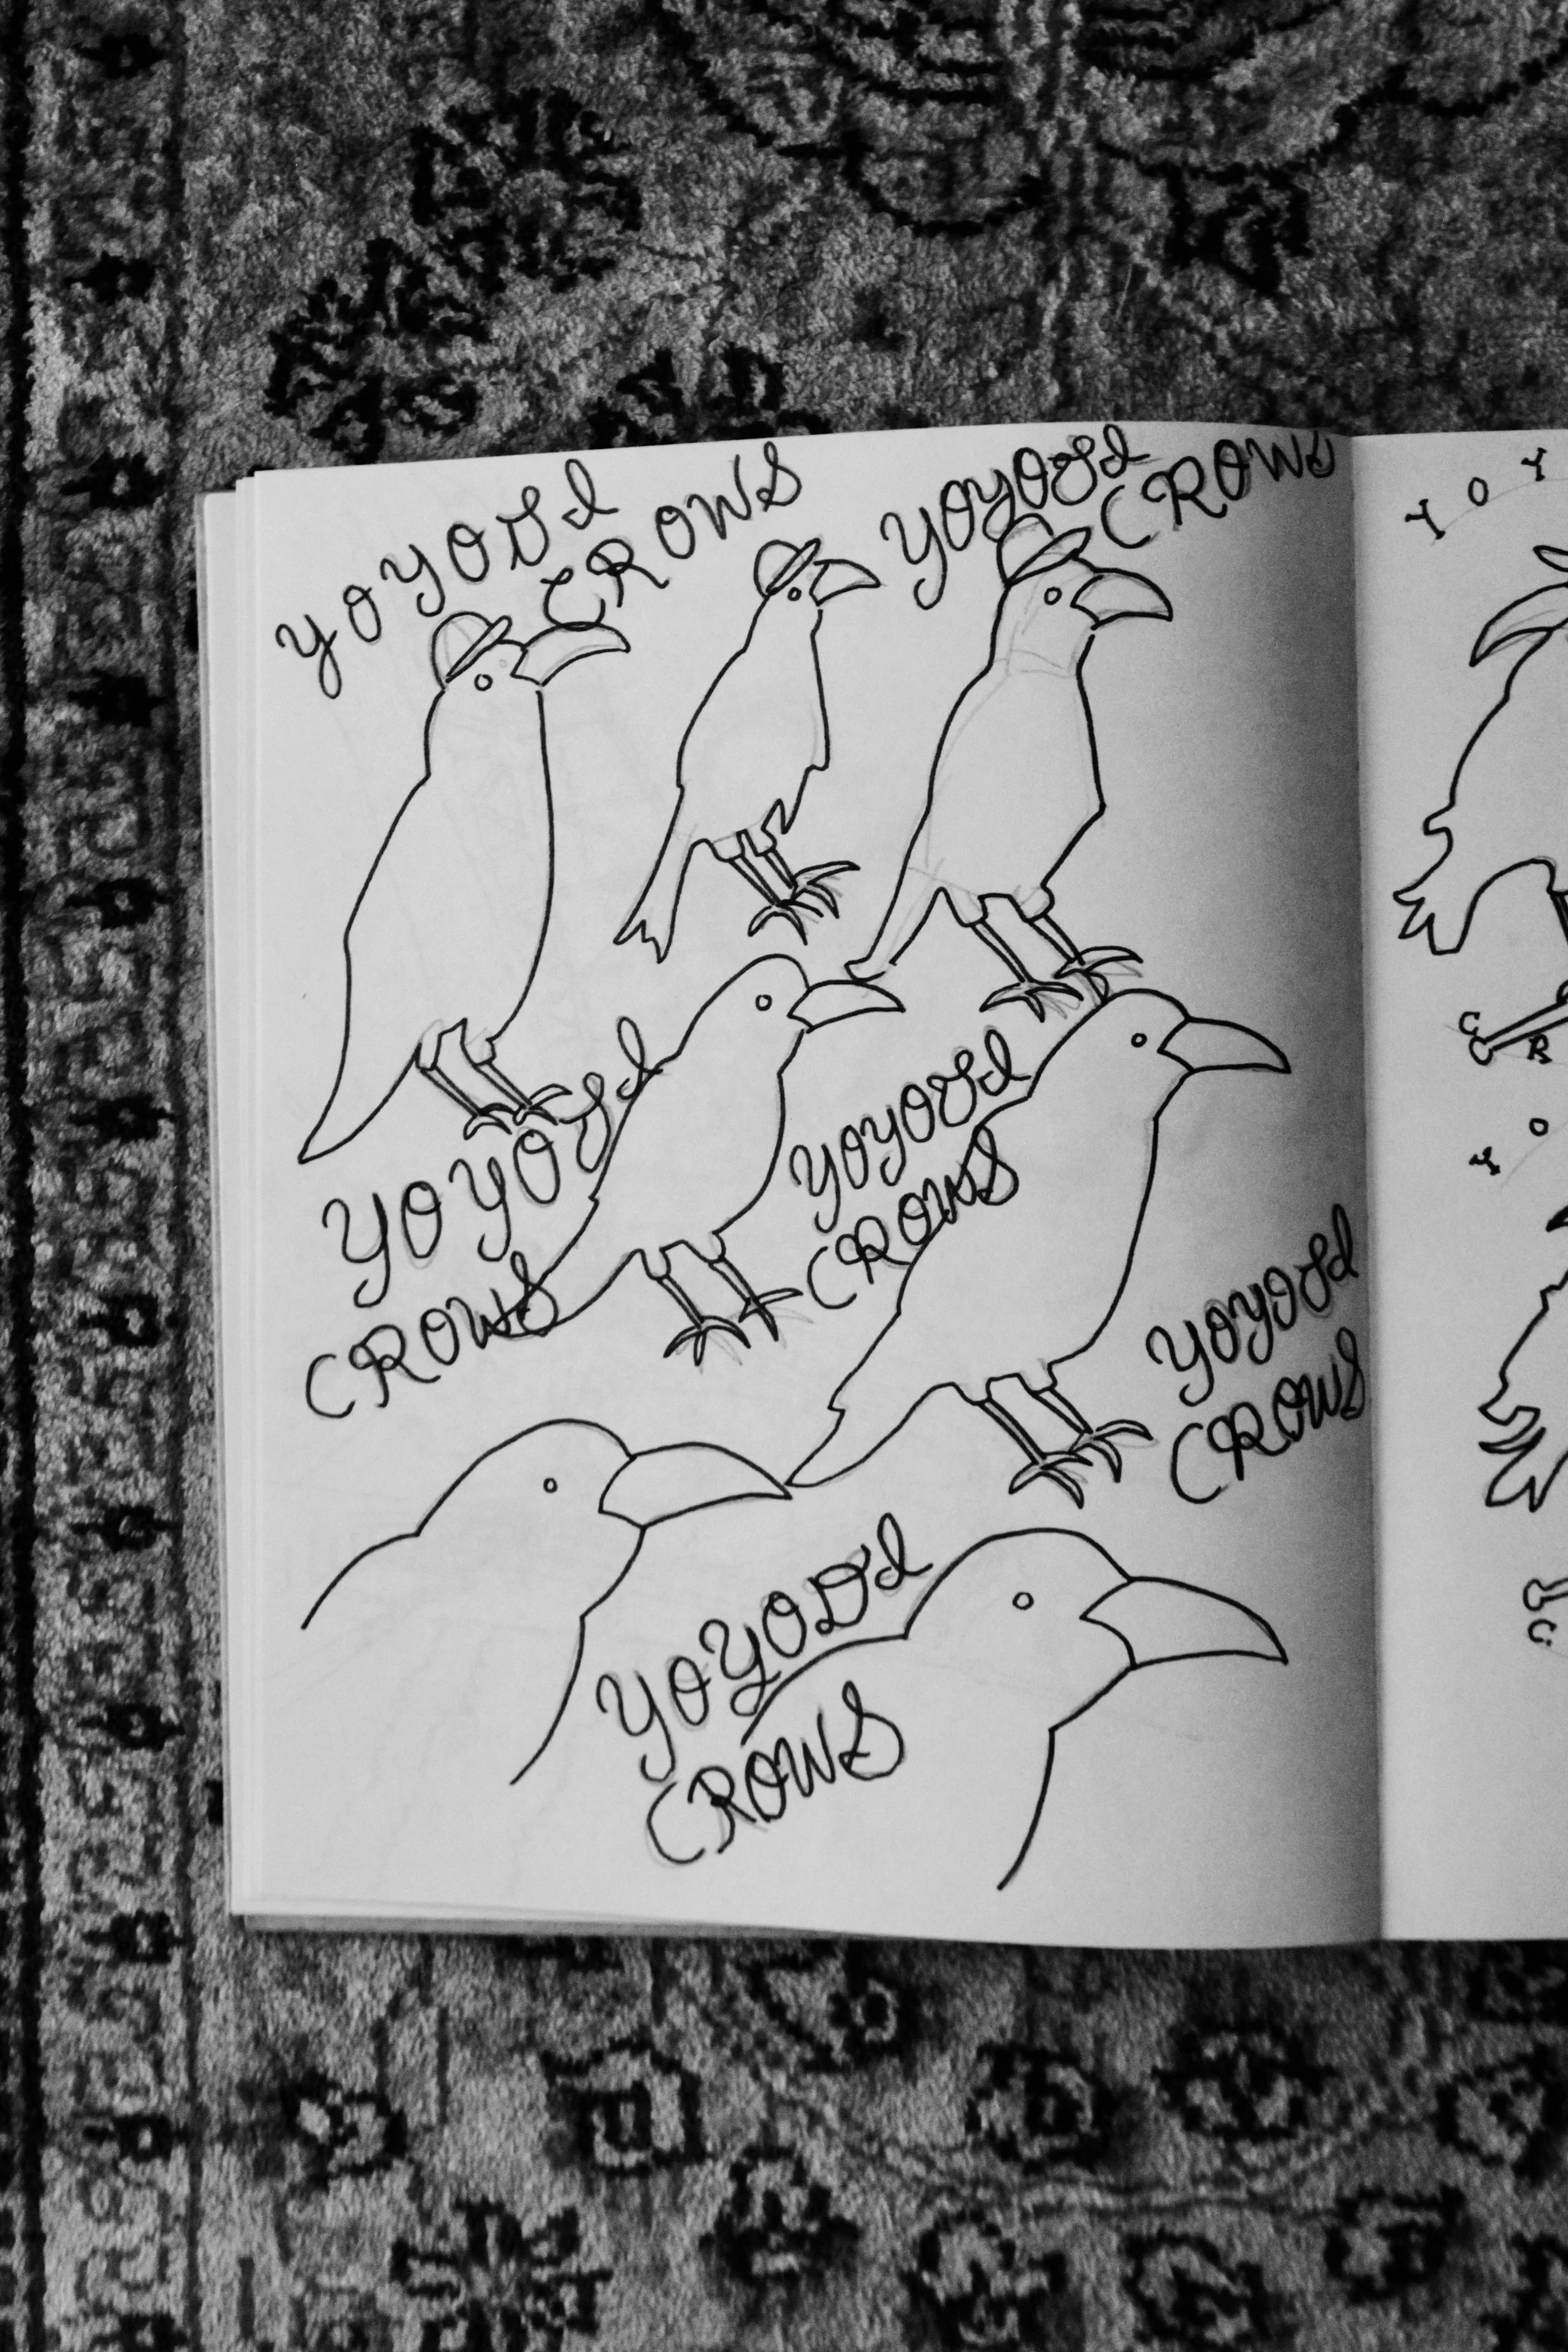 YOYOGI
CROWS
YOYOGI
CROWS
YOYOGI
CROWS
YOYOGI
CROWS
YOYOGI
CROWS
YOYOGI
CROWS
Y O Y
C R
Y O
C